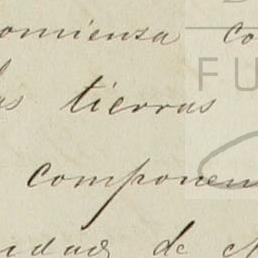 omiensa co
as tierras
componen
idad de